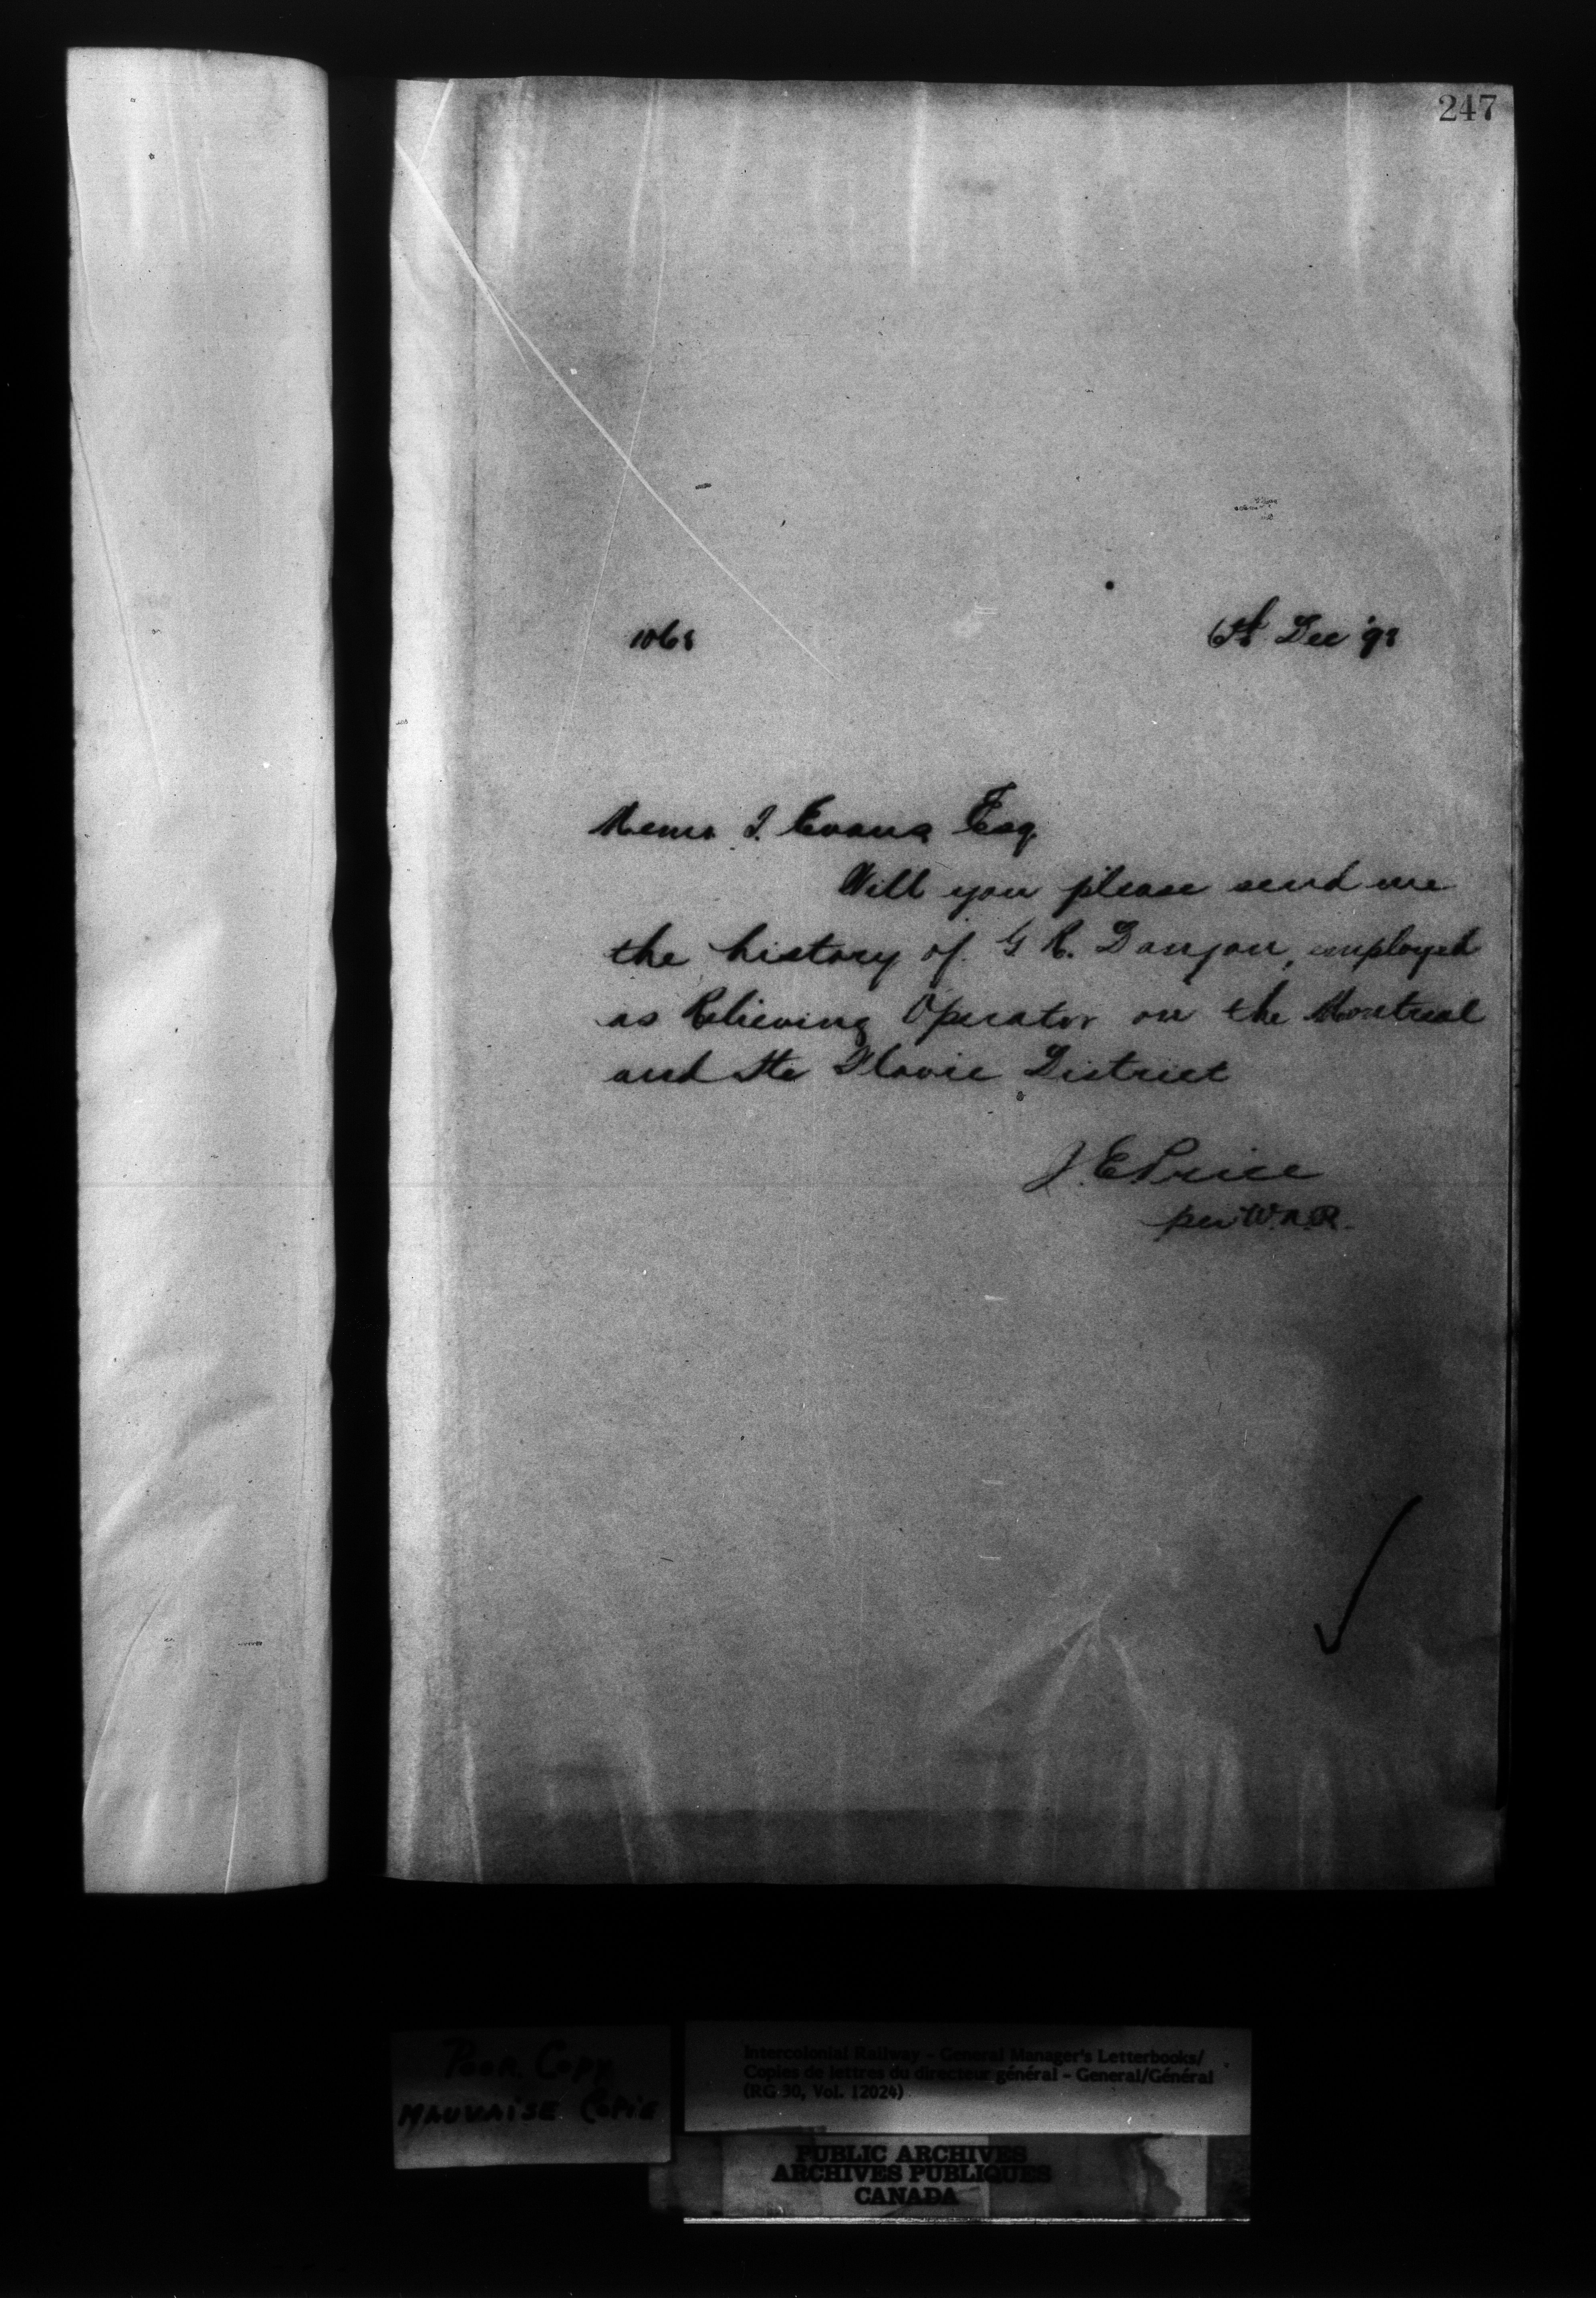 247
6th Dec '98
Memo J. Evans Esq.
Will you please send me
the history of G R. Danjou, employed
as Relieving Operator on the Montreal
and Ste Flavie District
J. E. Price
per W.A.R.
Poor Copy
MAUVAISE COPIE
Intercolonial Railway - General Manager's Letterbooks/
Copies de lettres du directeur général - General/Général
(RG 30, Vol. 12024)
PUBLIC ARCHIVES
ARCHIVES PUBLIQUES
CANADA